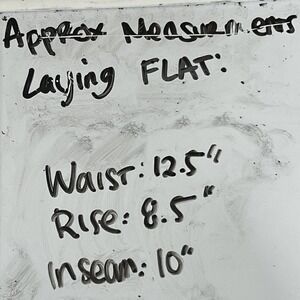 Approx Measurments
Laying FLAT:
Waist: 12.5"
Rise: 8.5"
inseam: 10"